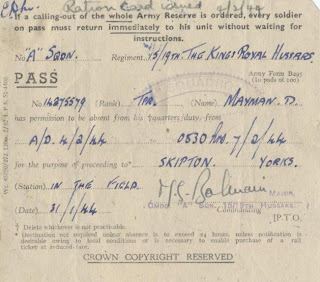 Ration Card issued 2/2/44
If a calling-out of the whole Army Reserve is ordered, every soldier
on pass must return immediately to his unit without waiting for
instructions.
No. "A" SQDN. Regiment 15/19TH. THE KINGS ROYAL HUSSARS.
Army Form B295
(In pads of 100)
PASS
No. 14275579 (Rank) TPR. (Name) MAYMAN. D.
has permission to be absent from his quarters, duty, from
A/D. 4/2/44 to 0530 HRS. 7/2/44
for the purpose of proceeding to SKIPTON. YORKS.
(Station) IN THE FIELD.
MAJOR,
(Date) 31/1/44
CMDG "A" SQN. 15/19TH HUSSARS.
Commanding
[P.T.O.
† Delete whichever is not practicable.
* Destination not required unless absence is to exceed 24 hours, unless notification is
desirable owing to local conditions or is necessary to enable purchase of a rail
ticket at reduced fare.
CROWN COPYRIGHT RESERVED